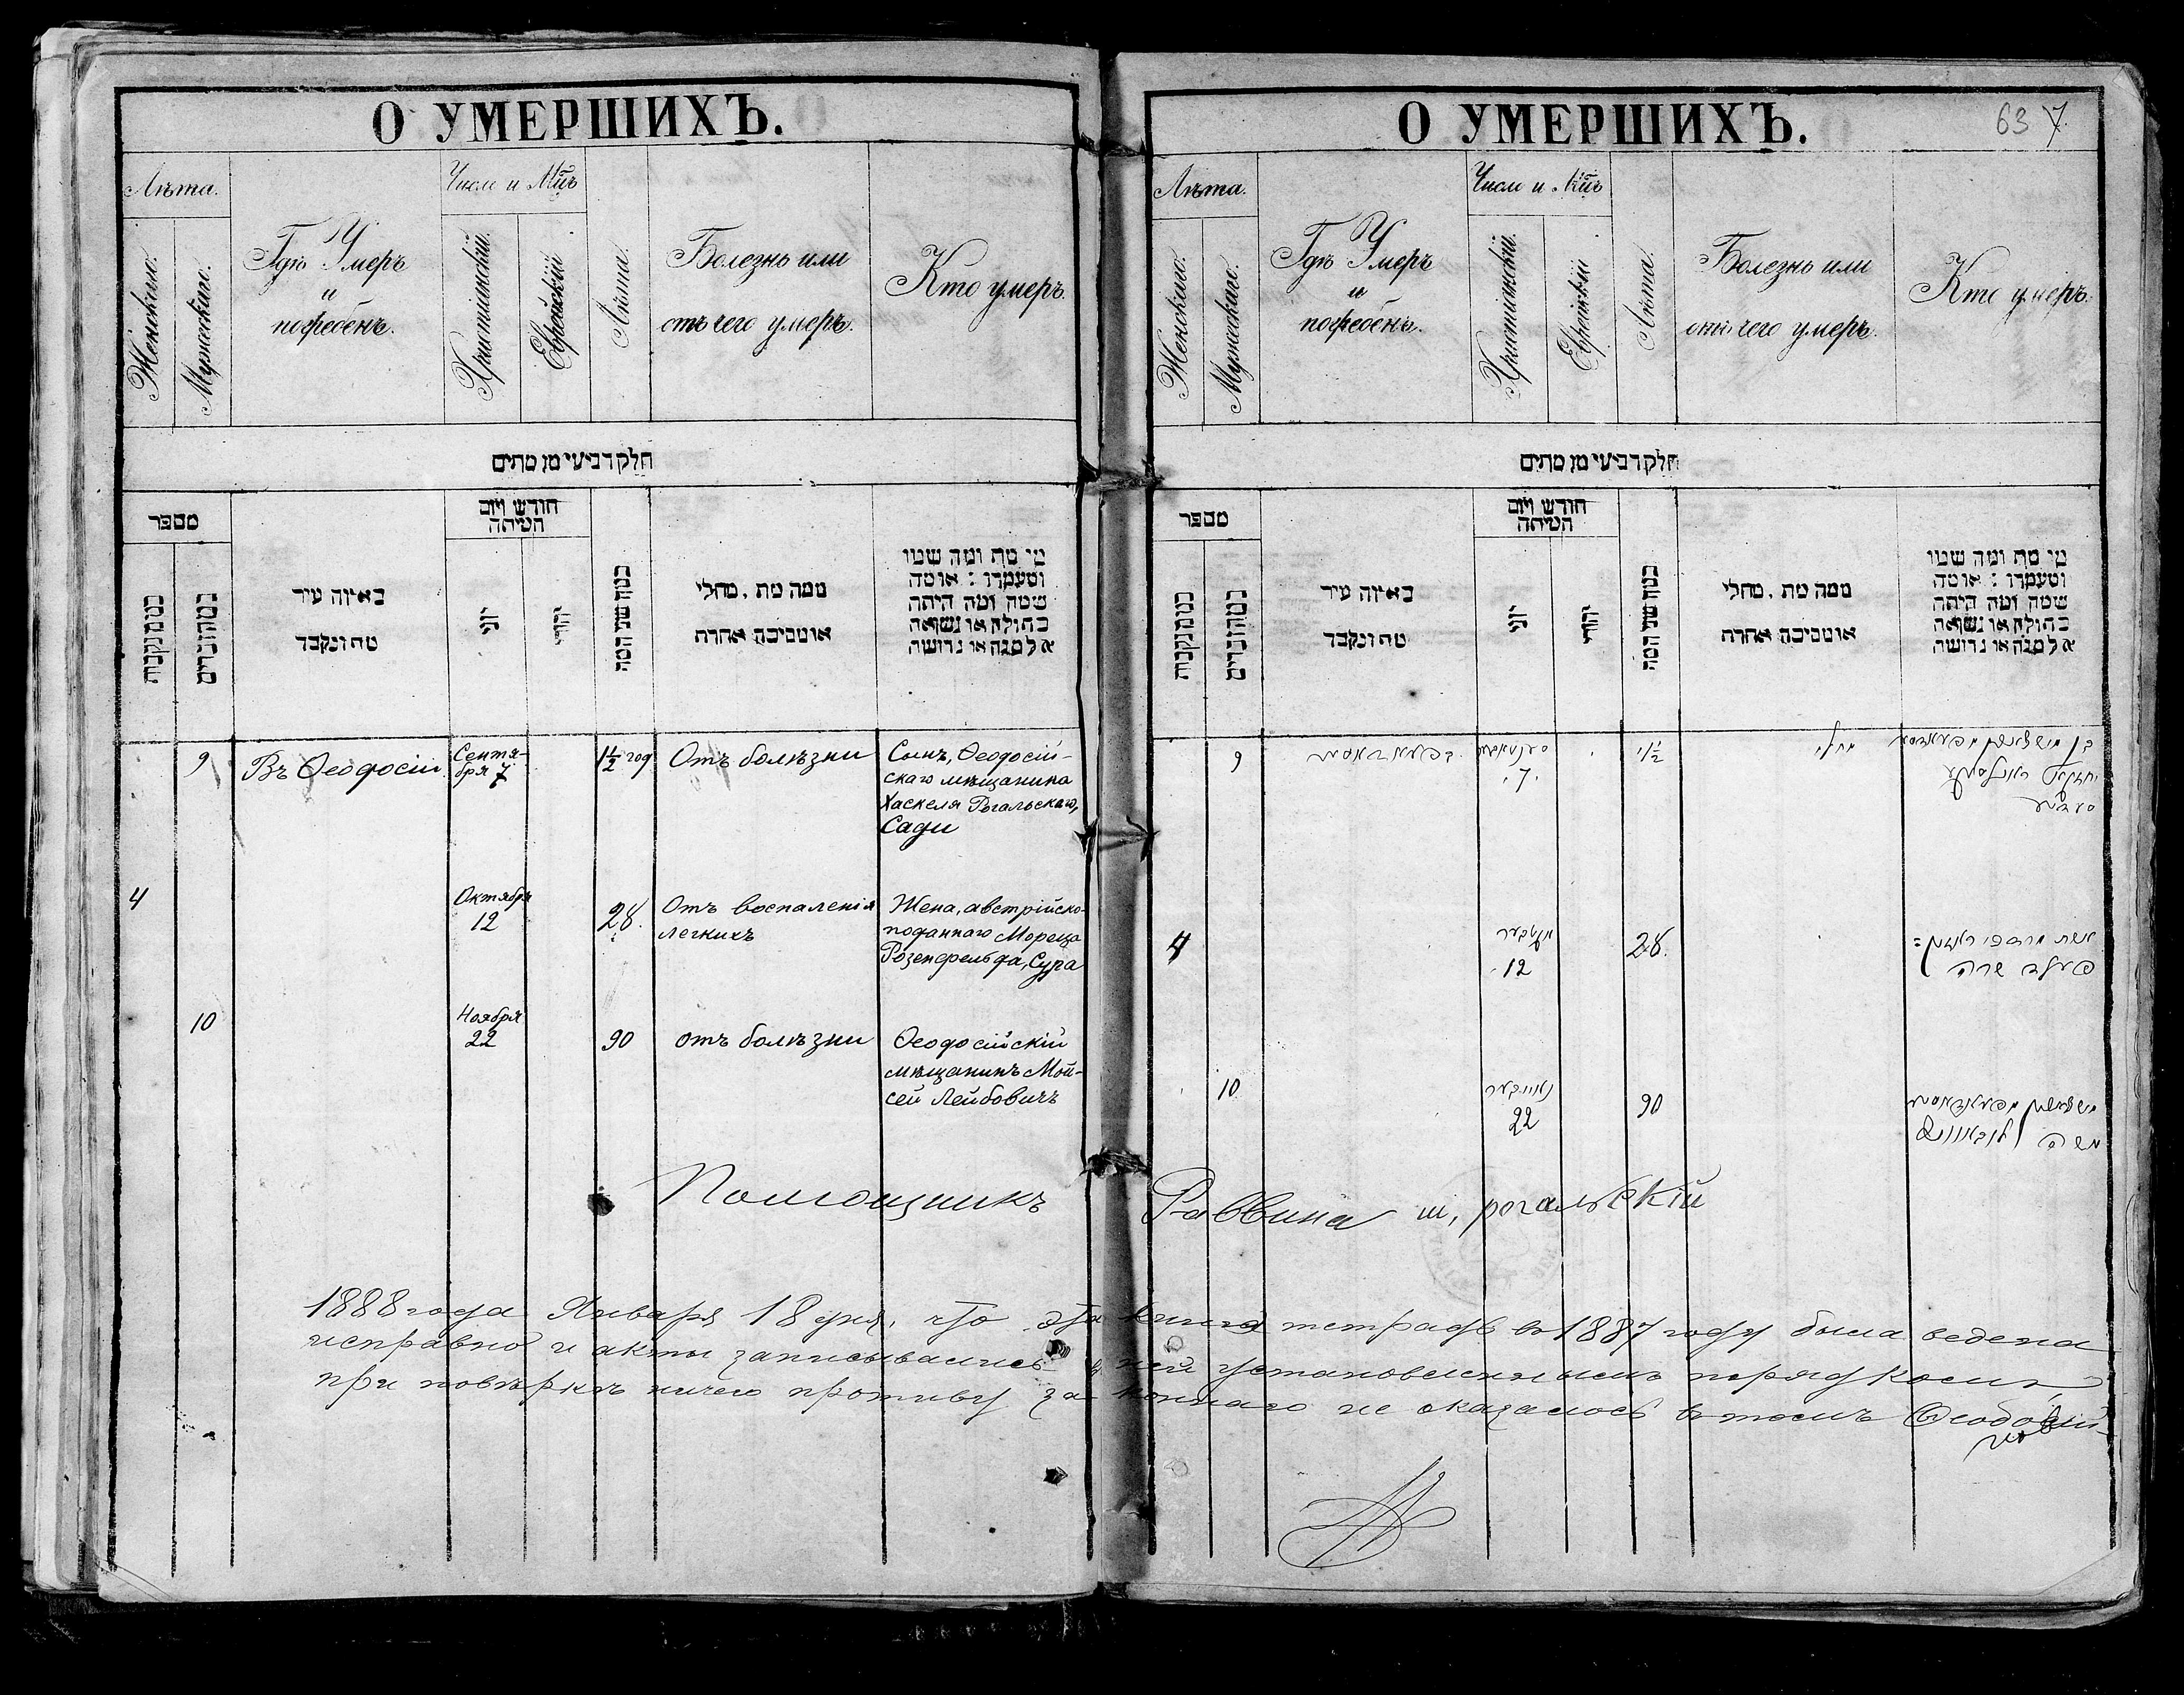 О УМЕРШИХЪ.
Лѣта.
Женскаго.
Мужескаго.
Гдѣ Умеръ
и
погребенъ.
Число и Мѣ̃ц
Христіанскій.
Еврейскій
Лѣта.
Болезнь или
отъ чего умеръ.
Кто умеръ.
חלק רביעי מן מתים
מספר
באיזה עיר
מת ונקבר
חודש ויום
המיתה
ממה מת . מחלי
או מסיבה אחרת
מי מת ומה שמו
ומעמדו : או מה
שמה ומה היתה
בתולה או נשואה
אלמנה או גרושה
9
Въ Ѳеодосіи
Сентя-
бря 7
1½ год
Отъ болѣзни
Сынъ, Ѳеодосій-
скаго мѣщанина
Хаскеля Рогальскаго,
Сади
4
Октября
12
28.
Отъ воспаленія
легкихъ
Жена, австрійско-
поданнаго Мореца
Розенфельда, Сура
10
Ноября
22
90
отъ болѣзни
Ѳеодосійскій
мѣщанинъ Мой-
сей Лейбовичъ
О УМЕРШИХЪ.
63 7
Лѣта.
Женскаго.
Мужескаго.
Гдѣ Умеръ
и
погребенъ.
Число и Мѣ̃ц
Христіанскій.
Еврейскій
Лѣта.
Болезнь или
отъ чего умеръ.
Кто умеръ.
חלק רביעי מן מתים
מספר
באיזה עיר
מת ונקבר
חודש ויום
המיתה
ממה מת . מחלי
או מסיבה אחרת
מי מת ומה שמו
ומעמדו : או מה
שמה ומה היתה
בתולה או נשואה
אלמנה או גרושה
9
7.
1½
מחלי
4
אקטאבער
12
28.
אשת
פעלד שרה
10
נאוועבער
22
90
משה לייבאוויץ
Помощникъ Раввина Ш, Рогальскій
1888 года Января 18 дня, что эта книга тетрадь въ 1887 году была ведена
исправно и акты записывались въ ней установленнымъ порядкомъ,
при повѣркѣ ничего противу законнаго не оказалось въ томъ Ѳеодосій-